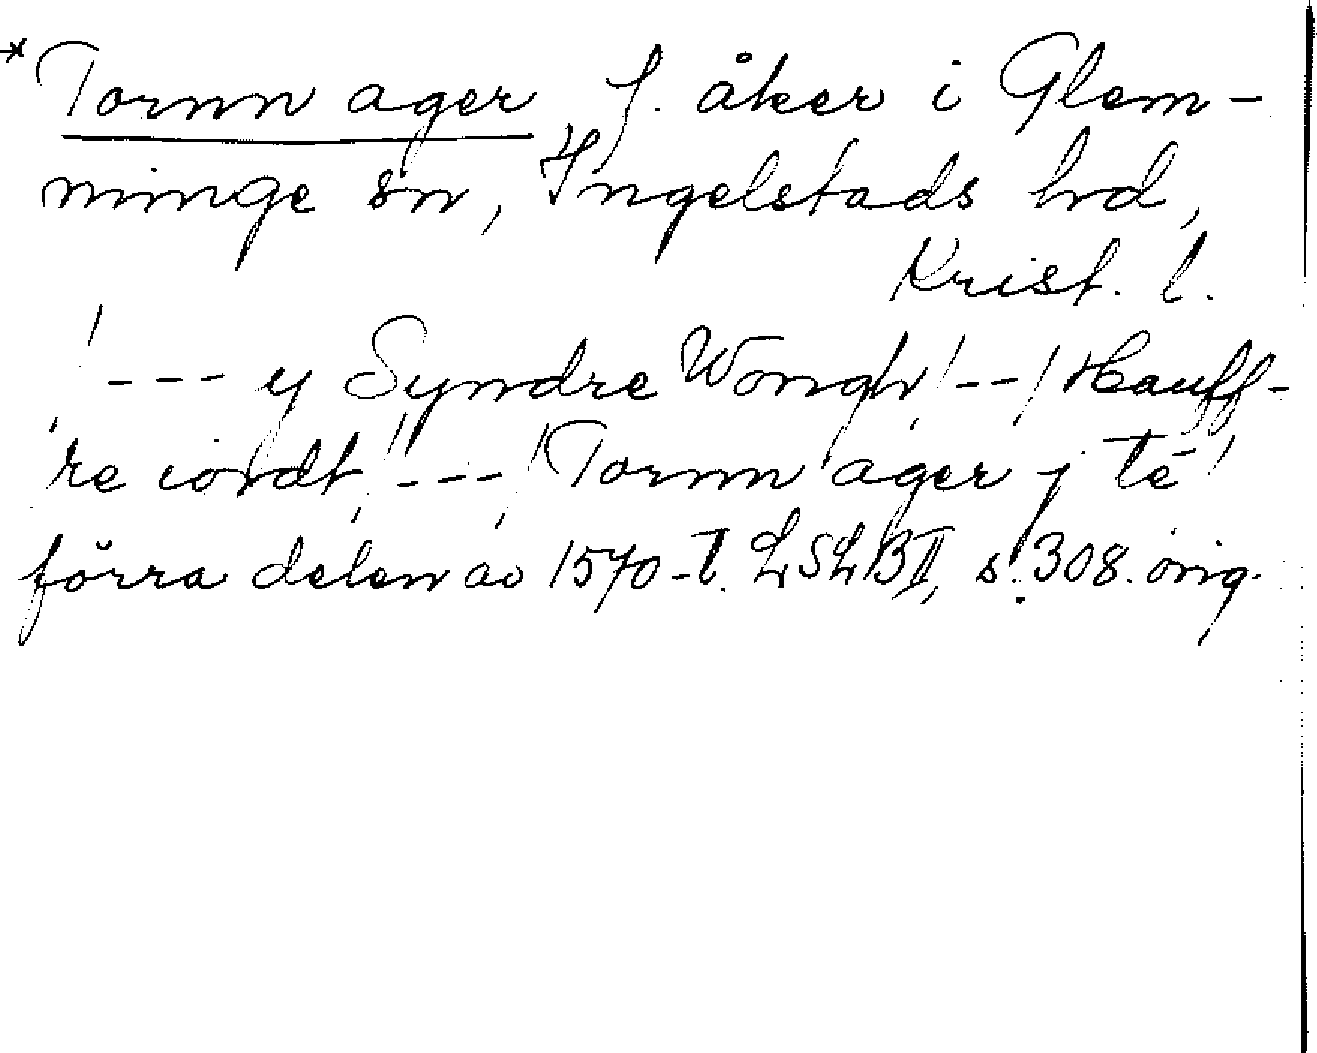 *Tornn ager f. åker i Glem-
minge sn, Ingelstads hd,
Krist. l.
/--- y Syndre Wongh/--/Hauff-
re iordt/---/Tornn ager j té
förra delen av 1570-t. LSLB II, s. 308. orig.